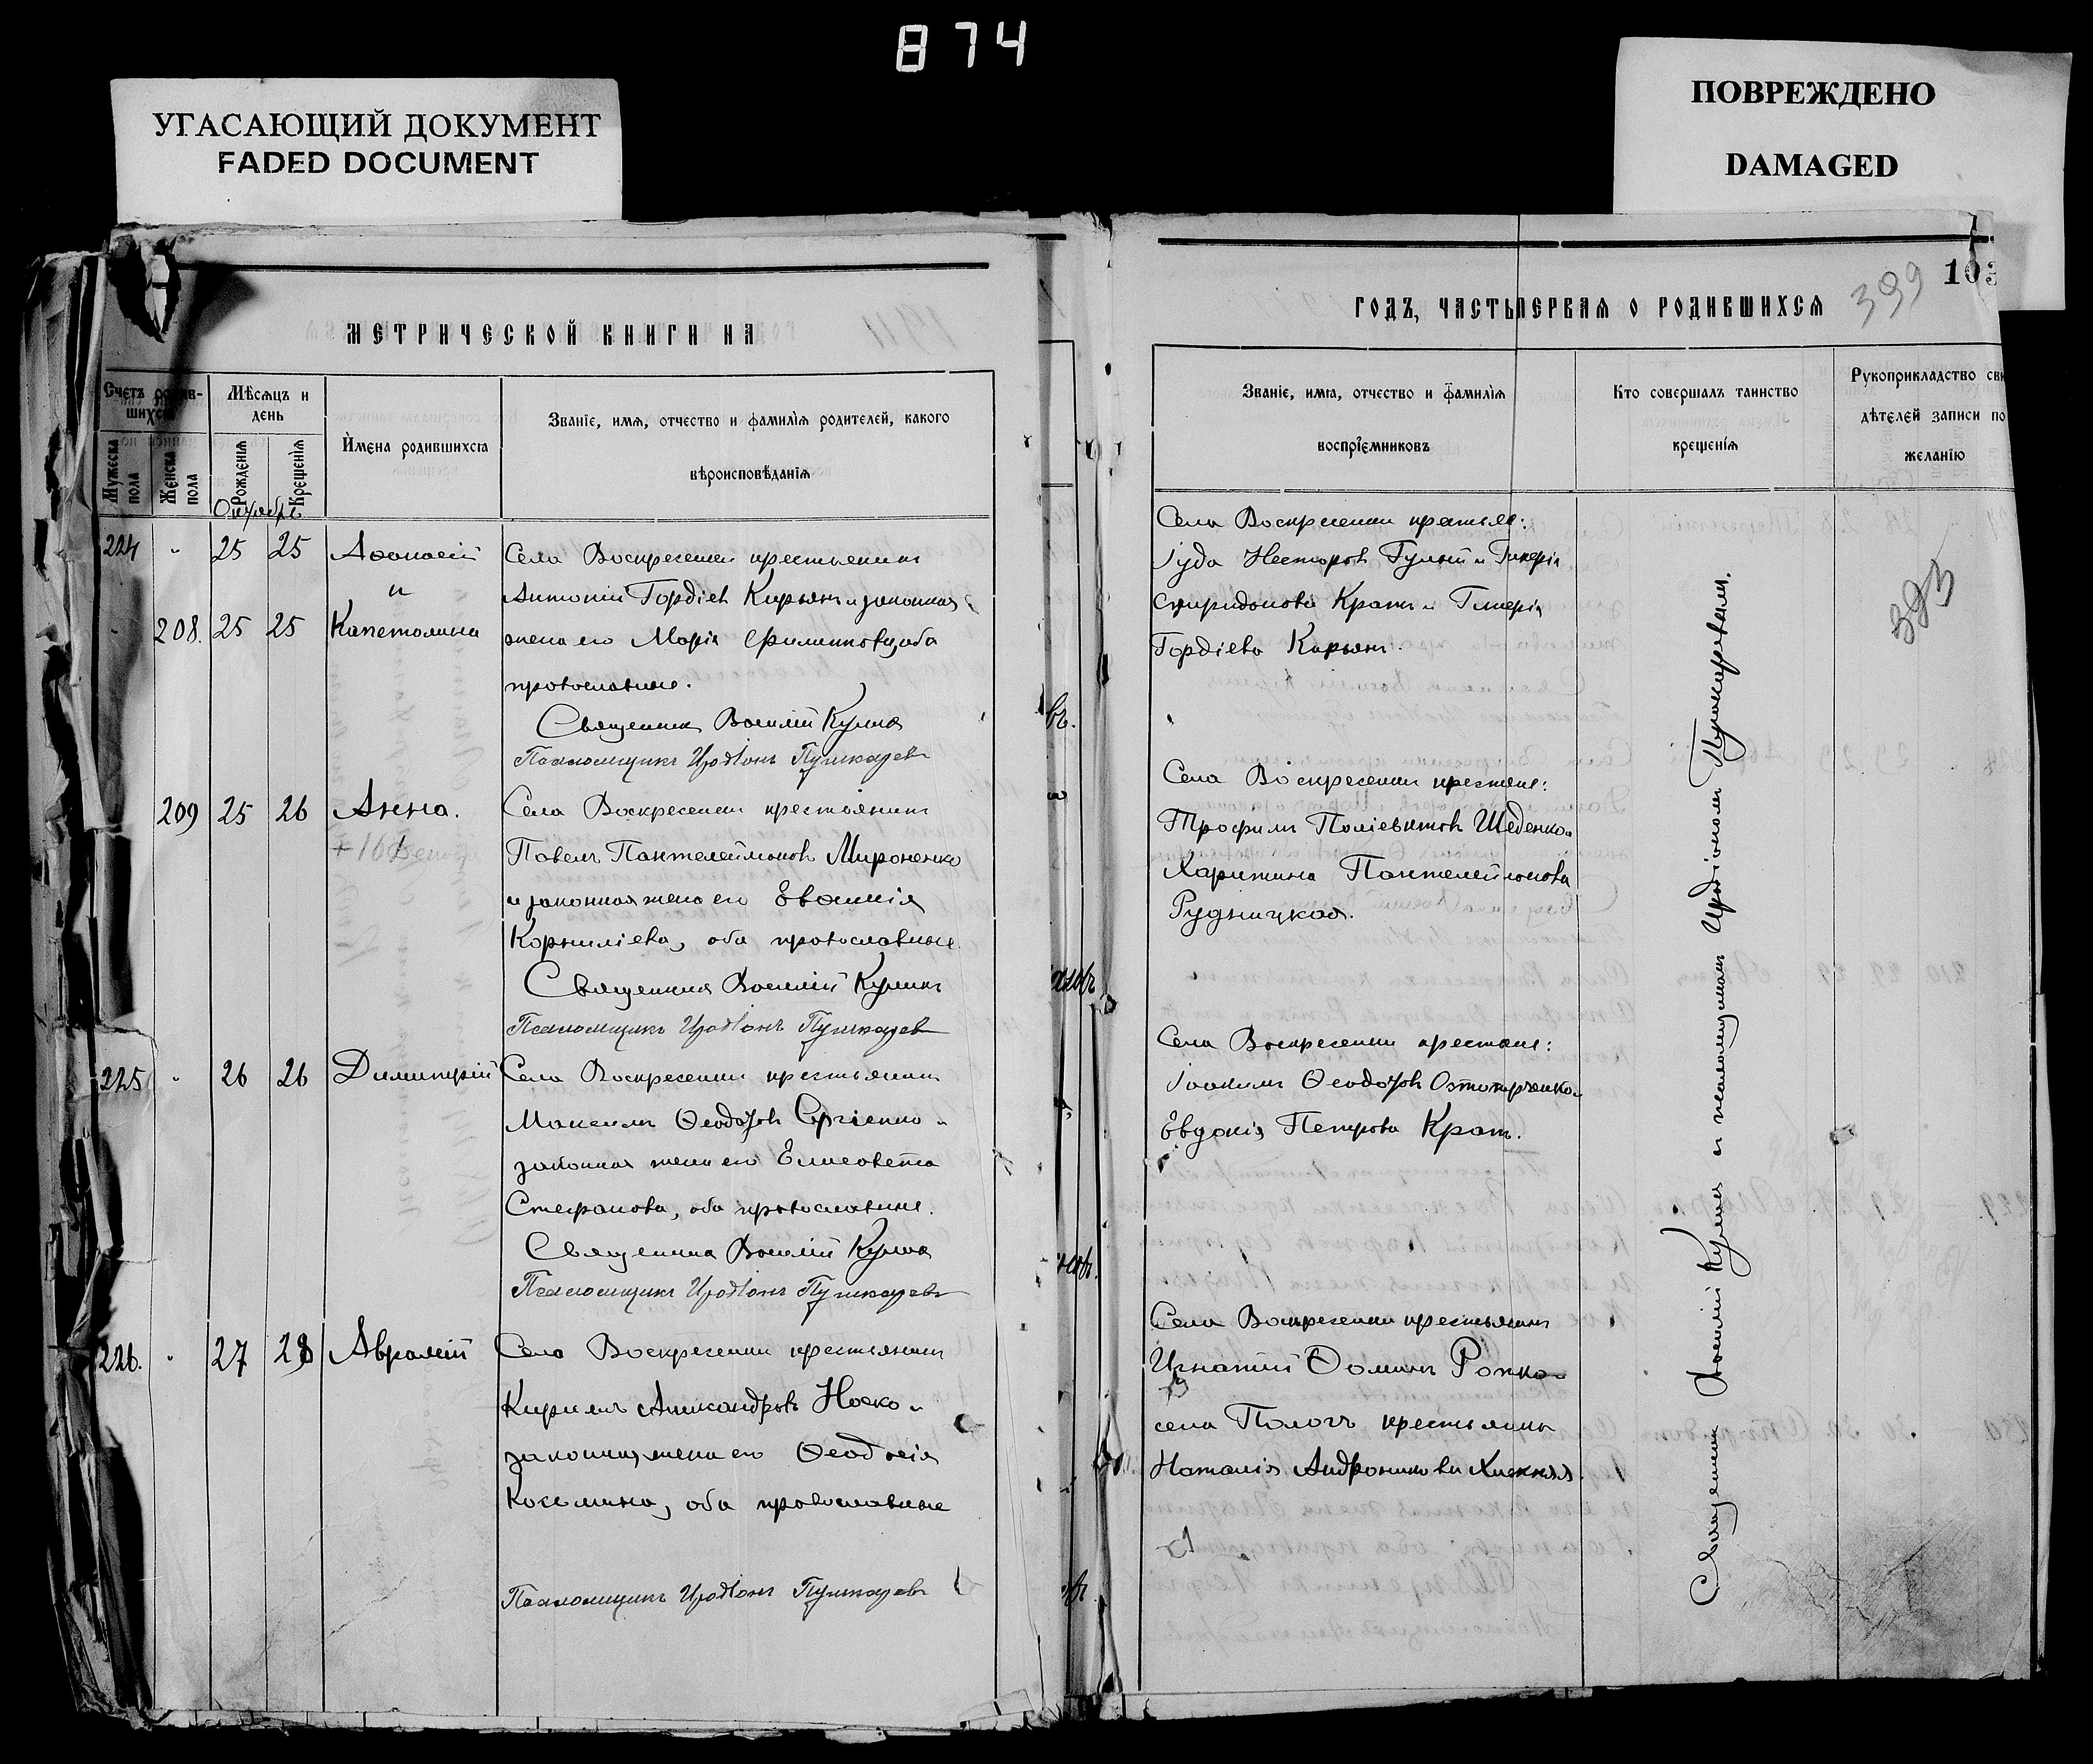 874
УГАСАЮЩИЙ ДОКУМЕНТ
FADED DOCUMENT
ПОВРЕЖДЕНО
DAMAGED
МЕТРИЧЕСКОЙ КНИГИ НА
Счетъ родив-
шихся
Мужеска
пола
Женска
пола
Мѣсяцъ и
день
Рожденія
Крещенія
Имена родившихся
Званіе, имя, отчество и фамилія родителей, какого
вѣроисповѣданія
Октябрь
224 25 25 Аѳонасій Села Воскресенки крестьянинъ
и Антоній Гордіевъ Кирьянъ и законная
208. 25 25 Капетолина жена его Марія Филиппова, оба
православные.
Священникъ Василій Кулика
Псаломщикъ Иродіонъ Пушкаревъ
209 25 26 Анна. Села Воскресенки крестьянинъ
+ 16 Павелъ Пантелеймоновъ Мироненко
и законная жена его Евѳимія
Корниліева, оба православные
Священникъ Василій Куликъ
Псаломщикъ Иродіонъ Пушкаревъ
225 26 26 Димитрій Села Воскресенки крестьянинъ
Максимъ Ѳеодоровъ Сергіенко и
законная жена его Елисавета
Стефанова, оба православные.
Священника Василій Кулика
Псаломщикъ Иродіонъ Пушкаревъ
226. 27 28 Авраамій Села Воскресенки крестьянинъ
Кириллъ Александровъ Носко и
законная жена его Ѳеодосія
Косьмина, оба православные
Псаломщикъ Иродіонъ Пушкаревъ
103
399
ГОДЪ, ЧАСТЬ ПЕРВАЯ О РОДИВШИХСЯ
Званіе, имя, отчество и фамилія
воспріемниковъ
Кто совершалъ таинство
крещенія
Рукоприкладство сви
дѣтелей записи по
желанію
Села Воскресенки крестьяне:
Іуда Несторовъ и Гликерія
Спиридонова Кратъ и Гликерія
Гордіева Кирьянъ.
393
Села Воскресенки крестьяне:
Трофимъ Поліевктовъ Шеденко и
Харитина Пантелеймонова
Рудницкая.
Села Воскресенки крестьяне:
Іоакимъ Ѳеодоровъ и
Евдокія Петрова Кратъ.
Села Воскресенки крестьянинъ
Игнатій Ѳоминъ Ропко и
села Пологъ крестьянка
Наталія Андроникова
Священникъ Василій Кулика и псаломщикомъ Иродіономъ Пушкаревымъ.